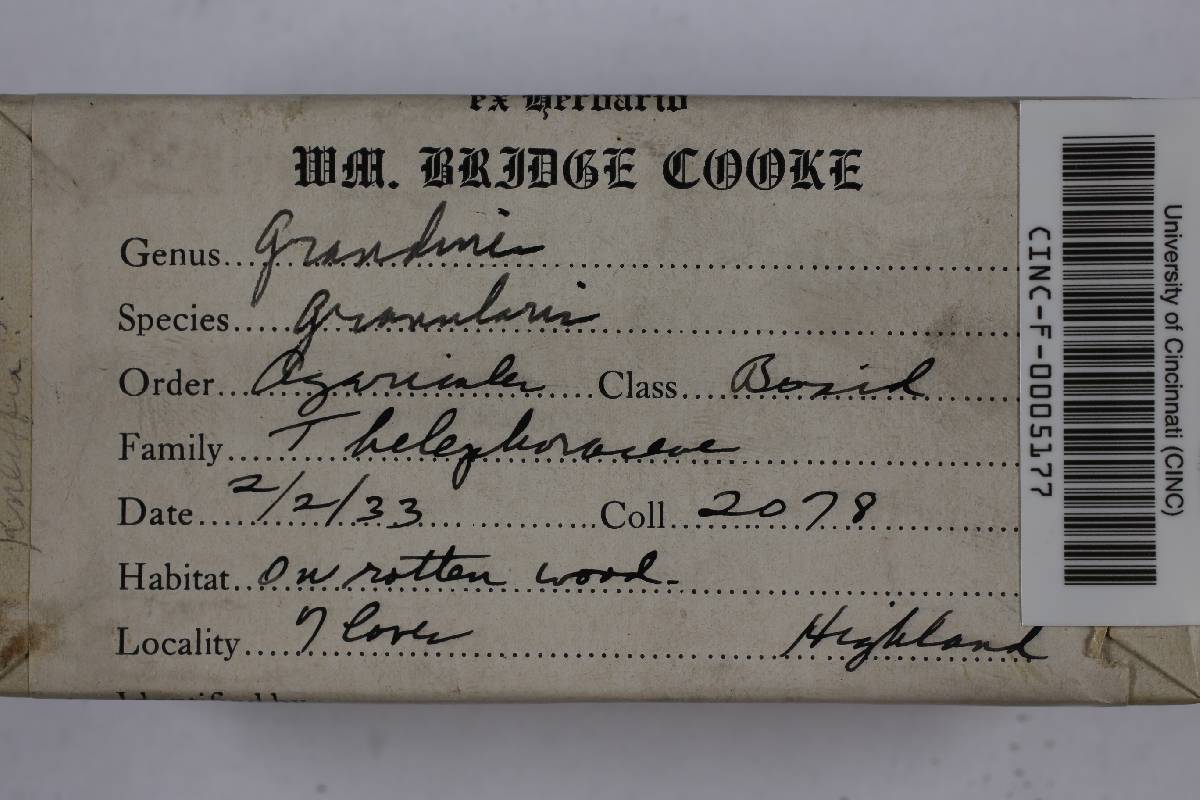 ex Herbario
WM. BRIDGE COOKE
Genus Grandinia
Species granularis
Order Agaricales Class Basid
Family Thelephoraceae
Date 2/2/33 Coll 2078
Habitat On rotten wood.
Locality 7 Caves Highland
Identified by
CINC-F-0005177
University of Cincinnati (CINC)